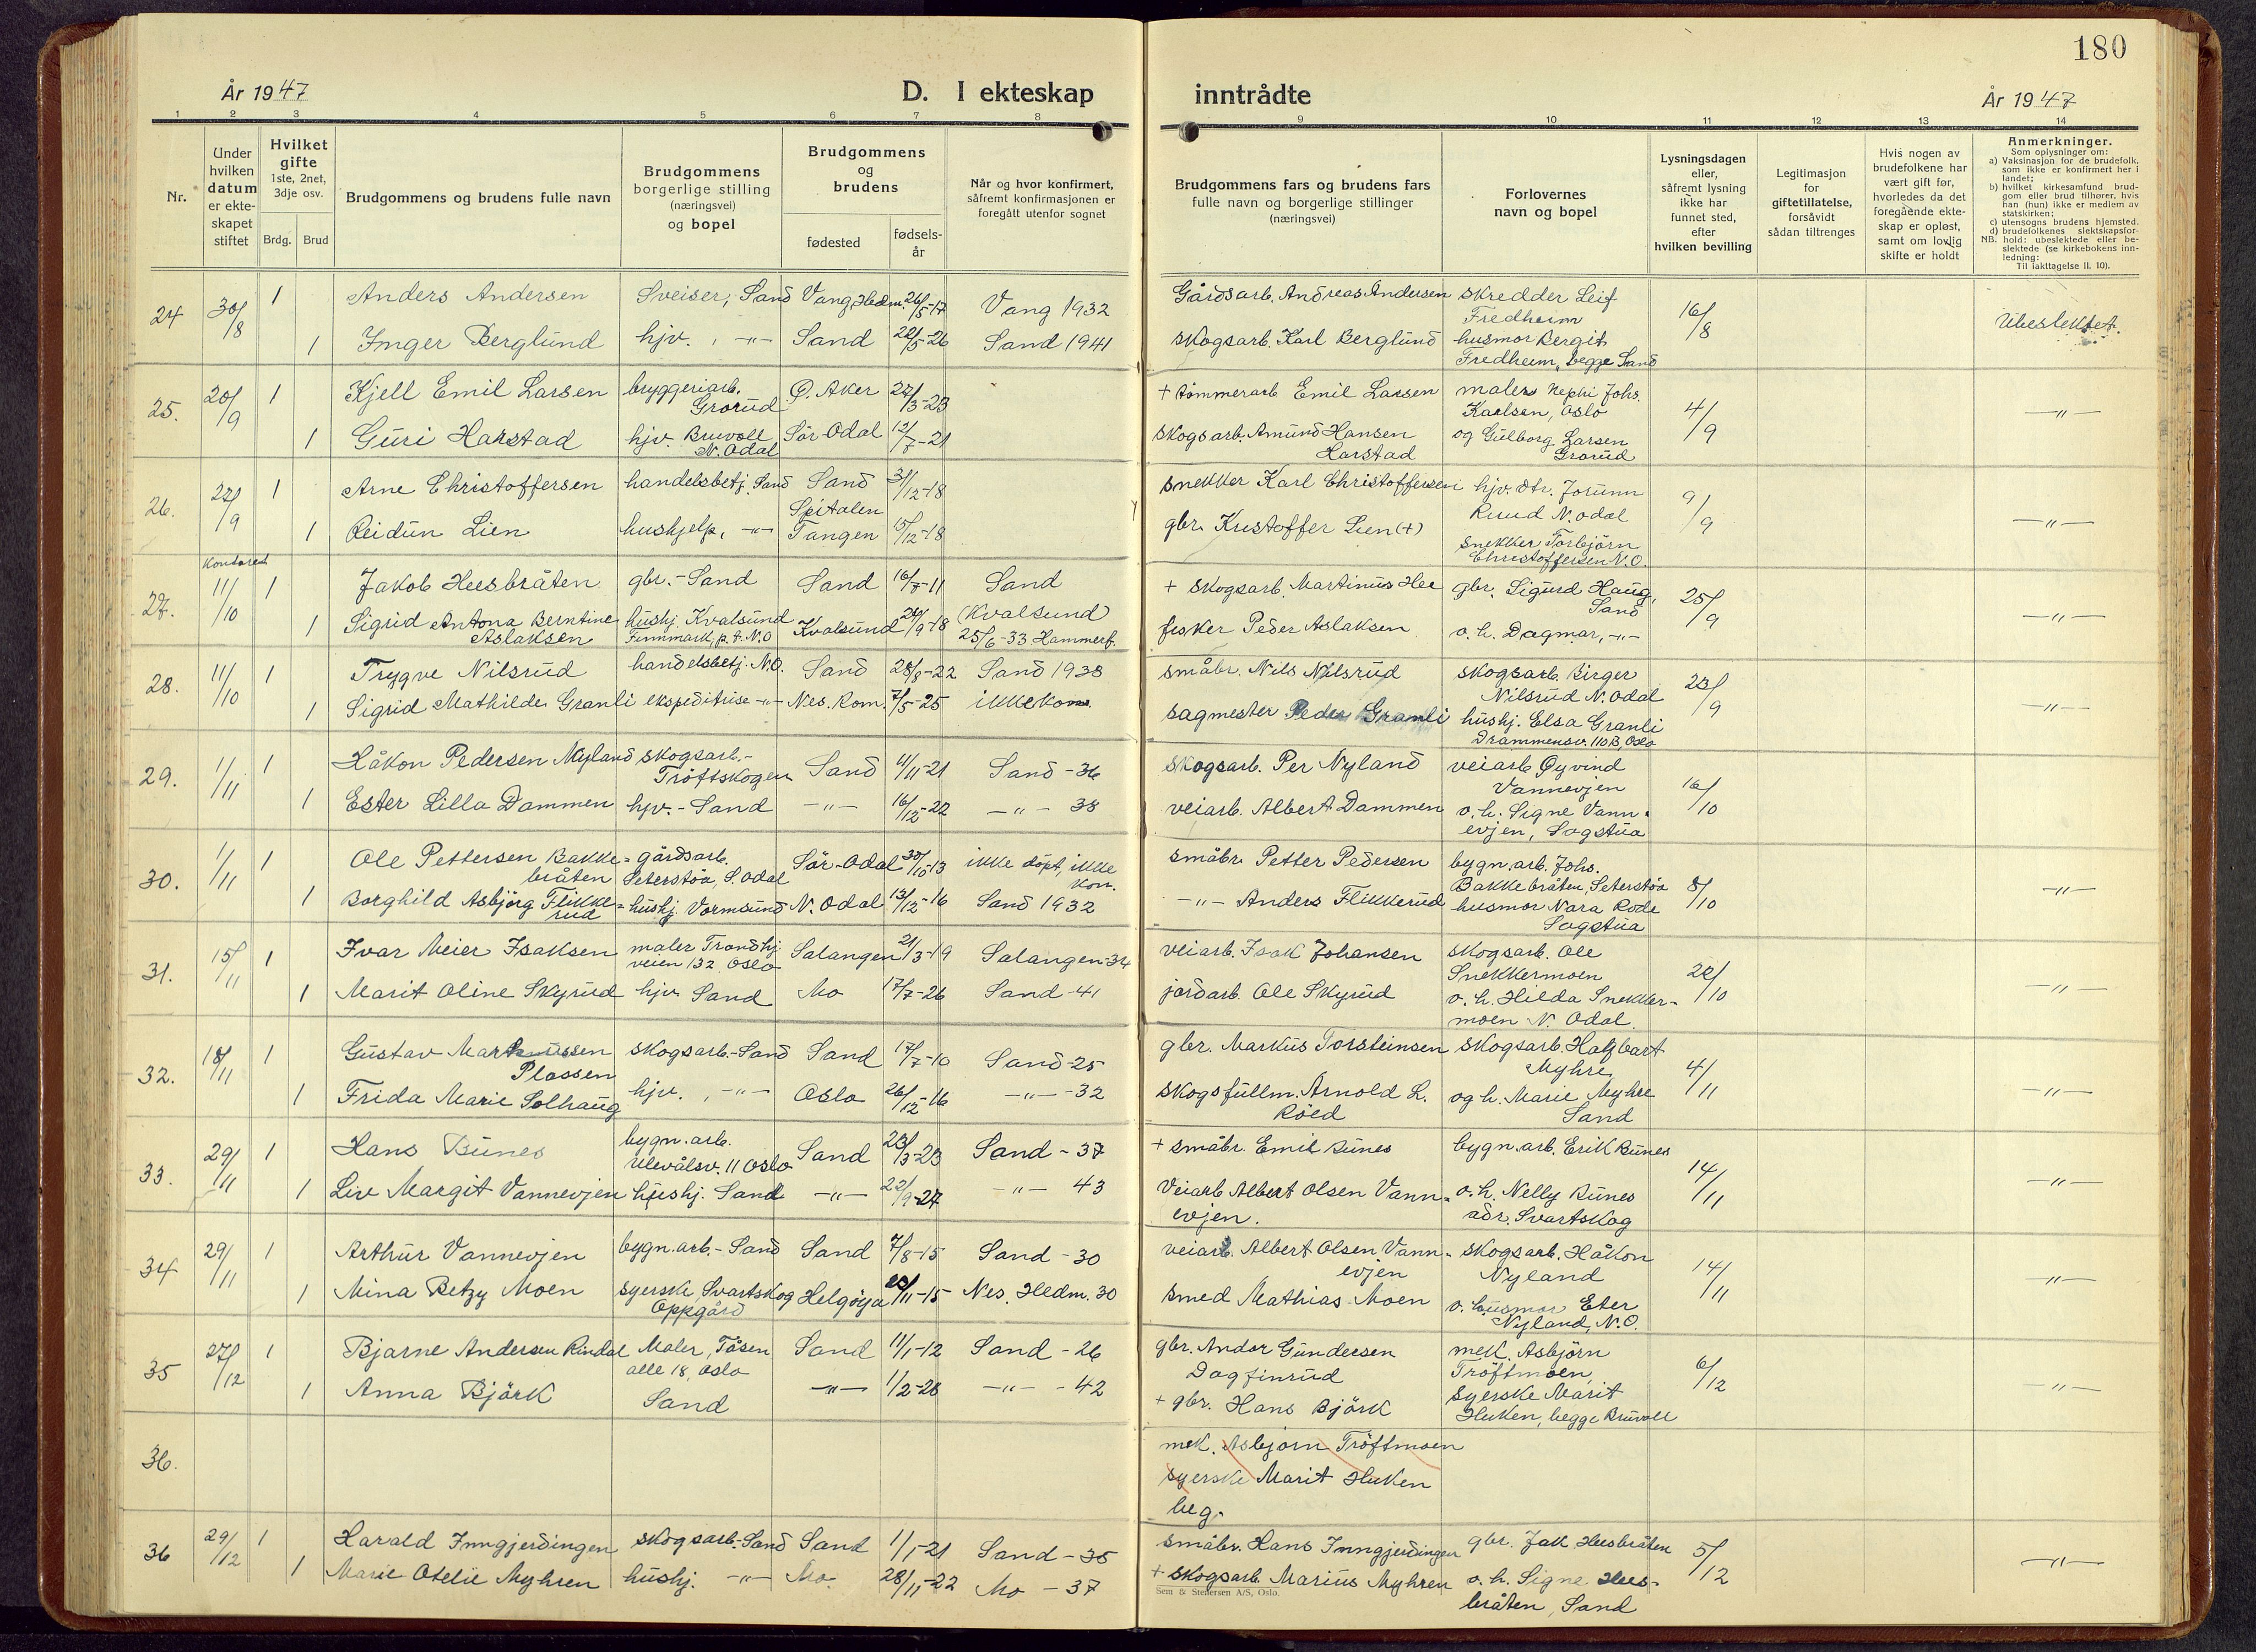 180
År 1947
D. I ekteskap inntrådte
År 1947
1 2 3 4 5 6 7 8 9 10 11 12 13 14
Nr.
Under hvilken datum er ekte-skapet stiftet
Hvilket gifte 1ste, 2net, 3dje osv.
Brdg. Brud
Brudgommens og brudens fulle navn
Brudgommens borgerlige stilling (næringsvei) og bopel
Brudgommens og brudens
fødested
fødsels-år
Når og hvor konfirmert, såfremt konfirmasjonen er foregått utenfor sognet
Brudgommens fars og brudens fars fulle navn og borgerlige stillinger (næringsvei)
Forlovernes navn og bopel
Lysningsdagen eller, såfremt lysning ikke har funnet sted, efter hvilken bevilling
Legitimasjon for giftetillatelse, forsåvidt sådan tiltrenges
Hvis nogen av brudefolkene har vært gift før, hvorledes da det foregående ekte-skap er opløst, samt om lovlig skifte er holdt
Anmerkninger.
Som oplysninger om:
a) Vaksinasjon for de brudefolk, som ikke er konfirmert her i landet;
b) hvilket kirkesamfund brud-gom eller brud tilhører, hvis han (hun) ikke er medlem av statskirken;
c) utensogns brudens hjemsted.
d) brudefolkenes slektskapsfor-hold: ubeslektede eller be-slektede (se kirkebokens inn-ledning:
NB. Til iakttagelse II. 10).
24 30/8 1 Anders Andersen Sveiser, Sand Vang, Hedm. 26/5-17 Vang 1932 Gårdsarb. Andreas Andersen skredder Leif Fredheim 16/8 Ubeslektet.
1 Inger Berglund hjv., -"- Sand 22/5-26 Sand 1941 skogsarb. Karl Berglund husmor Bergit Fredheim, begge Sand
25. 20/9 1 Kjell Emil Larsen bryggeriarb. Grorud Ø. Aker 27/3-23 + tømmerarb Emil Larsen maler Nephi Johs. Karlsen, Oslo 4/9 -"-
1 Guri Harstad hjv. Bruvoll N. Odal Sör-Odal 12/7-21 skogsarb. Amund Hansen Harstad og Gulborg Larsen Grorud
26. 27/9 1 Arne Christoffersen handelsbetj. Sand Sand 31/12-18 snekker Karl Christoffersen hjv. dtr. Jorunn Ruud N. odal 9/9 -"-
1 Reidun Lien hushjelp, -"- Spitalen Tangen 15/12-18 gbr. Kristoffer Lien (+) snekker Torbjörn Christoffersen N.O.
Kontoret
27. 11/10 1 Jakob Heesbråten gbr.-Sand Sand 16/7-11 Sand + skogsarb. Martinus Hee gbr. Sigurd Haug, Sand 25/9 -"-
1 Sigrid Antona Berntine Aslaksen hushj. Kvalsund Finnmark, p.t. N.O Kvalsund 20/9-18 (Kvalsund) 25/6-33 Hammerf. fisker Peder Aslaksen o. h. Dagmar, -"-
28. 11/10 1 Trygve Nilsrud handelsbetj. N.O. Sand 28/8-22 Sand 1938 småbr. Nils Nilsrud skogsarb. Birger Nilsrud N. Odal 23/9 -"-
1 Sigrid Mathilde Granli ekspeditrise -"- Nes. Rom. 7/5-25 ikke kon. sagmester Peder Granli hushj. Elsa Granli Drammensv. 110B, Oslo
29. 1/11 1 Håkon Pedersen Nyland skogsarb.- Tröftskogen Sand 11/11-21 Sand -36 skogsarb. Per Nyland veiarb Øyvind Vannevjen 16/10
1 Ester Lilla Dammen hjv.-Sand -"- 16/12-22 -"- 38 veiarb. Albert Dammen o. h. Signe Vannevjen, Sagstua
30. 1/11 1 Ole Pettersen Bakke=bråten gårdsarb. Seterstöa, S. Odal Sör-Odal 30/10-13 ikke döpt, ikke kon. småbr. Petter Pedersen bygn.arb. Johs. Bakkebråten, Seterstöa 8/10 -"-
1 Borghild Asbjörg Flikke=rud hushj. Vormsund N. Odal 13/12-16 Sand 1932 -"- Anders Flikkerud husmor Nara Rode Sagstua
31. 15/11 1 Ivar Meier Isaksen maler Trondhj.veien 132, Oslo Salangen 21/3-19 Salangen-34 veiarb. Isak Johansen skogsarb. Ole Snekkermoen 20/10 -"-
1 Marit Oline Skyrud hjv. Sand Mo 17/7-26 Sand-41 jordarb. Ole Skyrud o. h. Hilda Snekker-moen N. Odal.
32. 18/11 1 Gustav Markussen Plassen skogsarb.-Sand Sand 17/7-10 Sand-25 gbr. Markus Torsteinsen skogsarb. Hagbart Myhre 4/11 -"-
1 Frida Marie Solhaug hjv., -"- Oslo 26/12-16 -"- -32 skogsfullm. Arnold L. Röed og h. Marie Myhre Sand
33. 29/11 1 Hans Bunes bygn.arb. Ulevålsv. 11 Oslo Sand 23/3-23 Sand - 37 + småbr. Emil Bunes bygn.arb. Erik Bunes 14/11 -"-
1 Liv Margit Vannevjen hushj. Sand -"- 22/9-27 -"- 43 Veiarb Albert Olsen Vann=evjen. o. h. Nelly Bunes adr. Svartskog
34 29/11 1 Arthur Vannevjen bygn.arb.- Sand Sand 7/8-15 Sand - 30 veiarb. Albert Olsen Vann=evjen skogsarb. Håkon Nyland 14/11 -"-
1 Mina Betzy Moen syerske, Svartskog Oppgård Helgöya /11-15 Nes, Hedm. 30 smed Mathias Moen o. husmor Eter Nyland, N.O.
35 27/12 1 Bjarne Andersen Rindal Maler, Tåsen alle 18, Oslo Sand 11/1-12 Sand - 26 gbr. Andor Gundersen Dagfinrud mek. Asbjörn Tröftmoen, 6/12 -"-
1 Anna Björk Sand -"- 1/2-28 -"- -42 + gbr. Hans Björk syerske Marit Huken, begge Bruvoll
36. mek. Asbjörn Tröftmoen
syerske Marit Huken
beg.
36 29/12 1 Harald Inngjerdingen skogsarb.-Sand Sand 1/1-21 Sand - 35 småbr. Hans Inngjerdingen gbr. Jak. Heesbråten 5/12 -"-
1 Marie Otelie Myhren hushj. -"- Mo. 28/11-22 Mo - 37 + skogsarb. Marius Myhren o. h. Signe Hees-bråten, Sand
Sem & Stenersen A/S, Oslo.